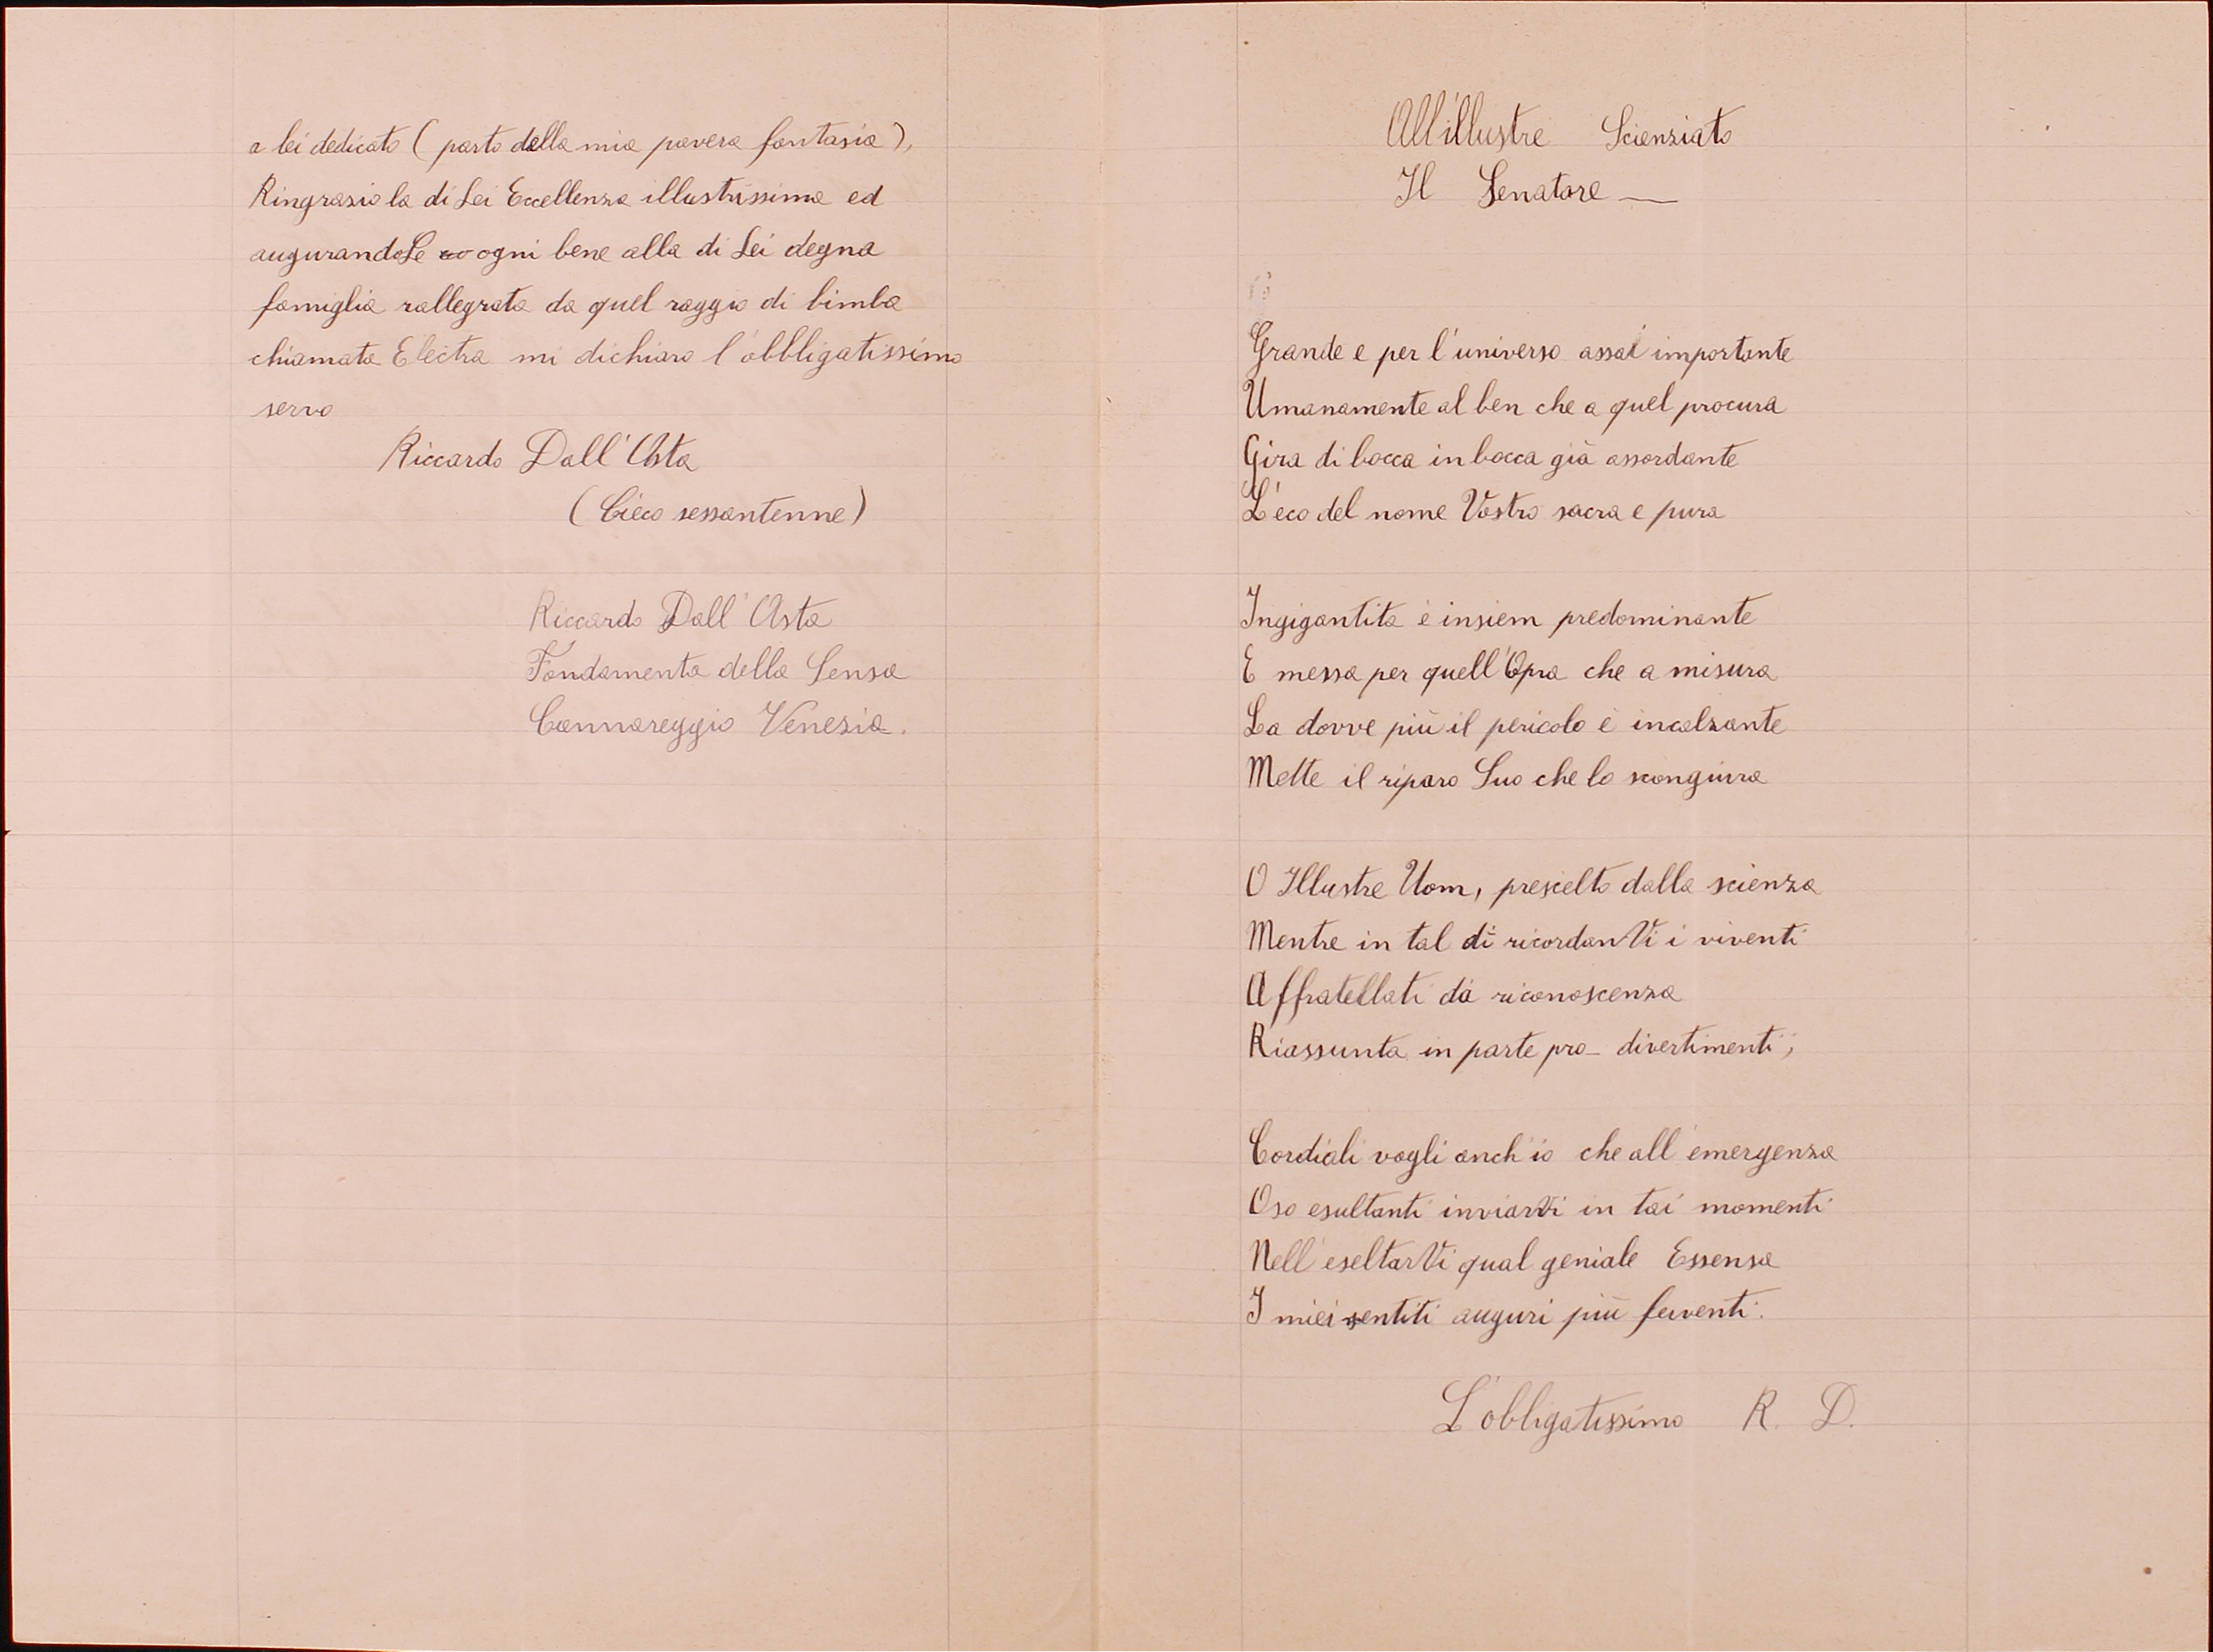 a lei dedicato (parto della mia povera fantasia),
Ringrazio la di Lei Eccellenza illustrissima ed
augurandoLe ogni bene alla di Lei degna
famiglia rallegrata da quel raggio di bimba
chiamata Electra mi dichiaro l'obbligatissimo
servo
Riccardo Dall'Asta
(Cieco sessantenne)
Riccardo Dall'Asta
Fondamenta della Sensa
Cannareggio Venezia.
All'illustre Scienziato
Il Senatore —
Grande e per l'universo assai importante
Umanamente al ben che a quel procura
Gira di bocca in bocca già assordante
L'eco del nome Vostro sacra e pura
Ingigantita è insiem predominante
E messa per quell'Opra che a misura
La dovve più il pericolo è incalzante
Mette il riparo Suo che lo scongiura
O Illustre Uom, prescelto dalla scienza
Mentre in tal dì ricordanVi i viventi
Affratellati da riconoscenza
Riassunta in parte pro- divertimenti,
Cordiali vogli anch'io che all'emergenza
Oso esultanti inviarVi in tai momenti
Nell'eseltarVi qual geniale Essenza
I miei sentiti auguri più ferventi.
L'obligatissimo R. D.